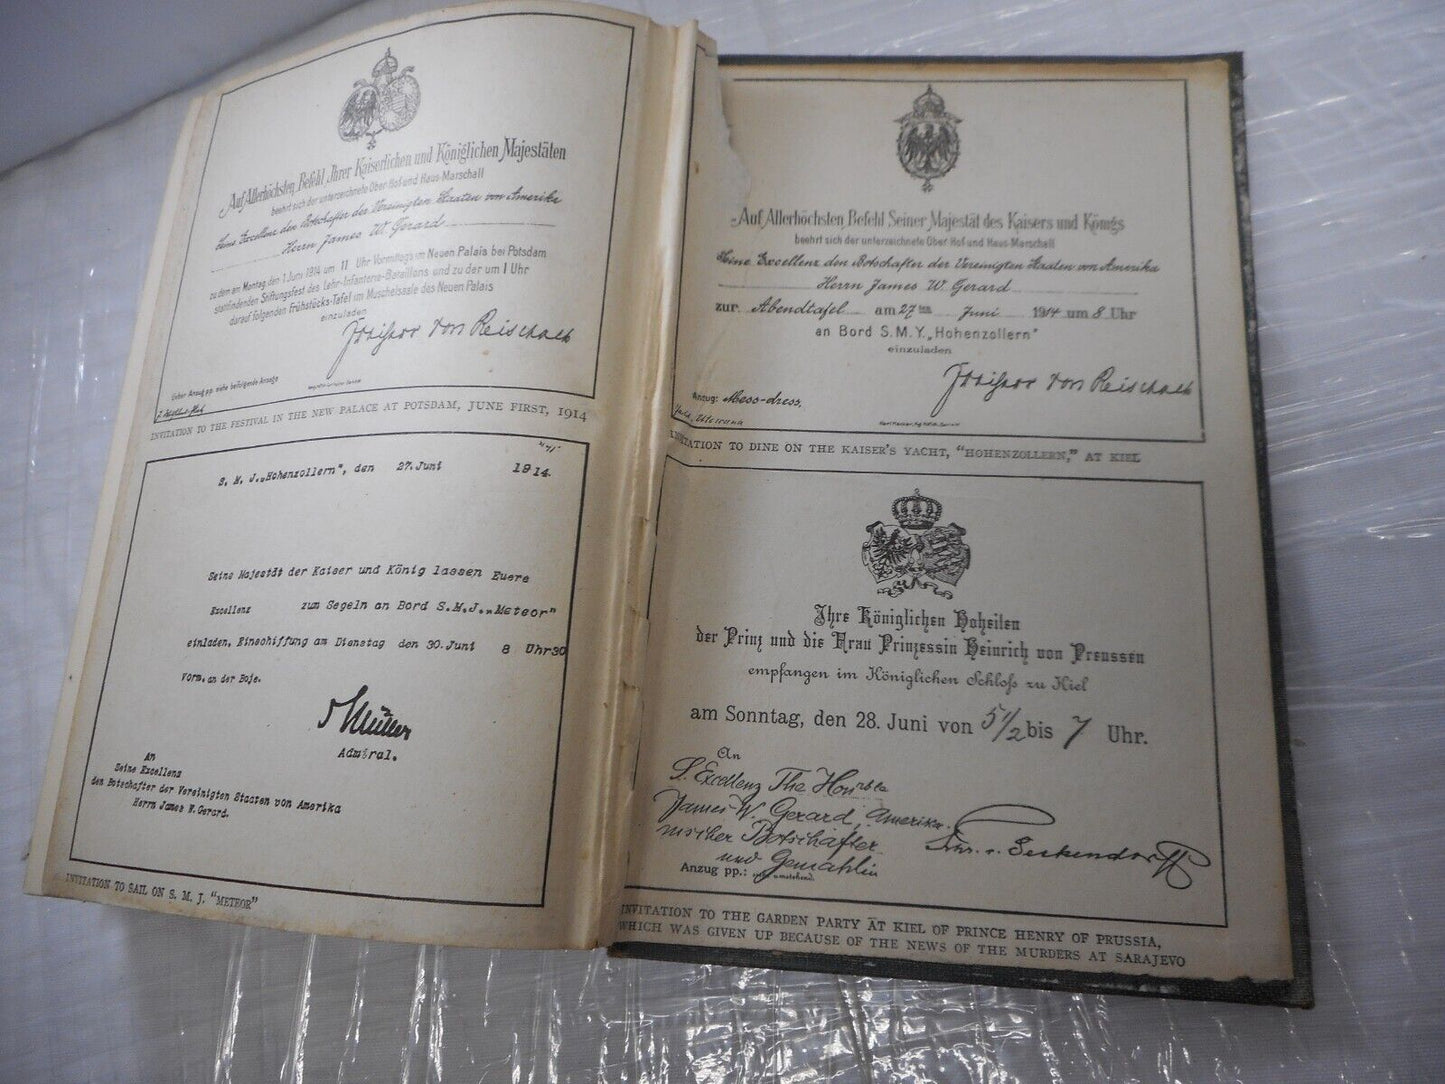 Auf Allerhöchsten Befehl Ihrer Kaiserlichen und Königlichen Majestäten
beehrt sich der unterzeichnete Ober-Hof-und Haus-Marschall
Seine Excellenz den Botschafter der Vereinigten Staaten von Amerika
Herrn James W. Gerard
zu dem am Montag den 1. Juni 1914 um 11 Uhr Vormittags im Neuen Palais bei Potsdam
stattfindenden Stiftungsfest des Lehr-Infanterie-Bataillons und zu der um 1 Uhr
darauf folgenden Frühstücks-Tafel im Muschelsaale des Neuen Palais
einzuladen
von Reischach
Ueber Anzug pp. siehe beifolgende Ansage
INVITATION TO THE FESTIVAL IN THE NEW PALACE AT POTSDAM, JUNE FIRST, 1914
S. M. J. „Hohenzollern", den 27. Juni 1914
Seine Majestät der Kaiser und König lassen Euere
Excellenz zum Segeln an Bord S.M.J. „Meteor"
einladen, Einschiffung am Dienstag den 30. Juni 8 Uhr 30
Vorm. an der Boje.
Müller
Admiral.
An
Seine Excellenz
den Botschafter der Vereinigten Staaten von Amerika
Herrn James W. Gerard.
INVITATION TO SAIL ON S. M. J. "METEOR"
Auf Allerhöchsten Befehl Seiner Majestät des Kaisers und Königs
beehrt sich der unterzeichnete Ober-Hof und Haus-Marschall
Seine Excellenz den Botschafter der Vereinigten Staaten von Amerika
Herrn James W. Gerard
zur Abendtafel am 27ten Juni 1914 um 8 Uhr
an Bord S.M.Y. „Hohenzollern"
einzuladen
von Reischach
Anzug: Mess-dress.
INVITATION TO DINE ON THE KAISER'S YACHT, "HOHENZOLLERN," AT KIEL
Ihre Königlichen Hoheiten
der Prinz und die Frau Prinzessin Heinrich von Preussen
empfangen im Königlichen Schloß zu Kiel
am Sonntag, den 28. Juni von 5 1/2 bis 7 Uhr.
An
S. Excellenz The Honrble
James W. Gerard, Amerika-
nischer Botschafter
und Gemahlin
Frhr. v. Seckendorff
Anzug pp.: umstehend.
INVITATION TO THE GARDEN PARTY AT KIEL OF PRINCE HENRY OF PRUSSIA,
WHICH WAS GIVEN UP BECAUSE OF THE NEWS OF THE MURDERS AT SARAJEVO